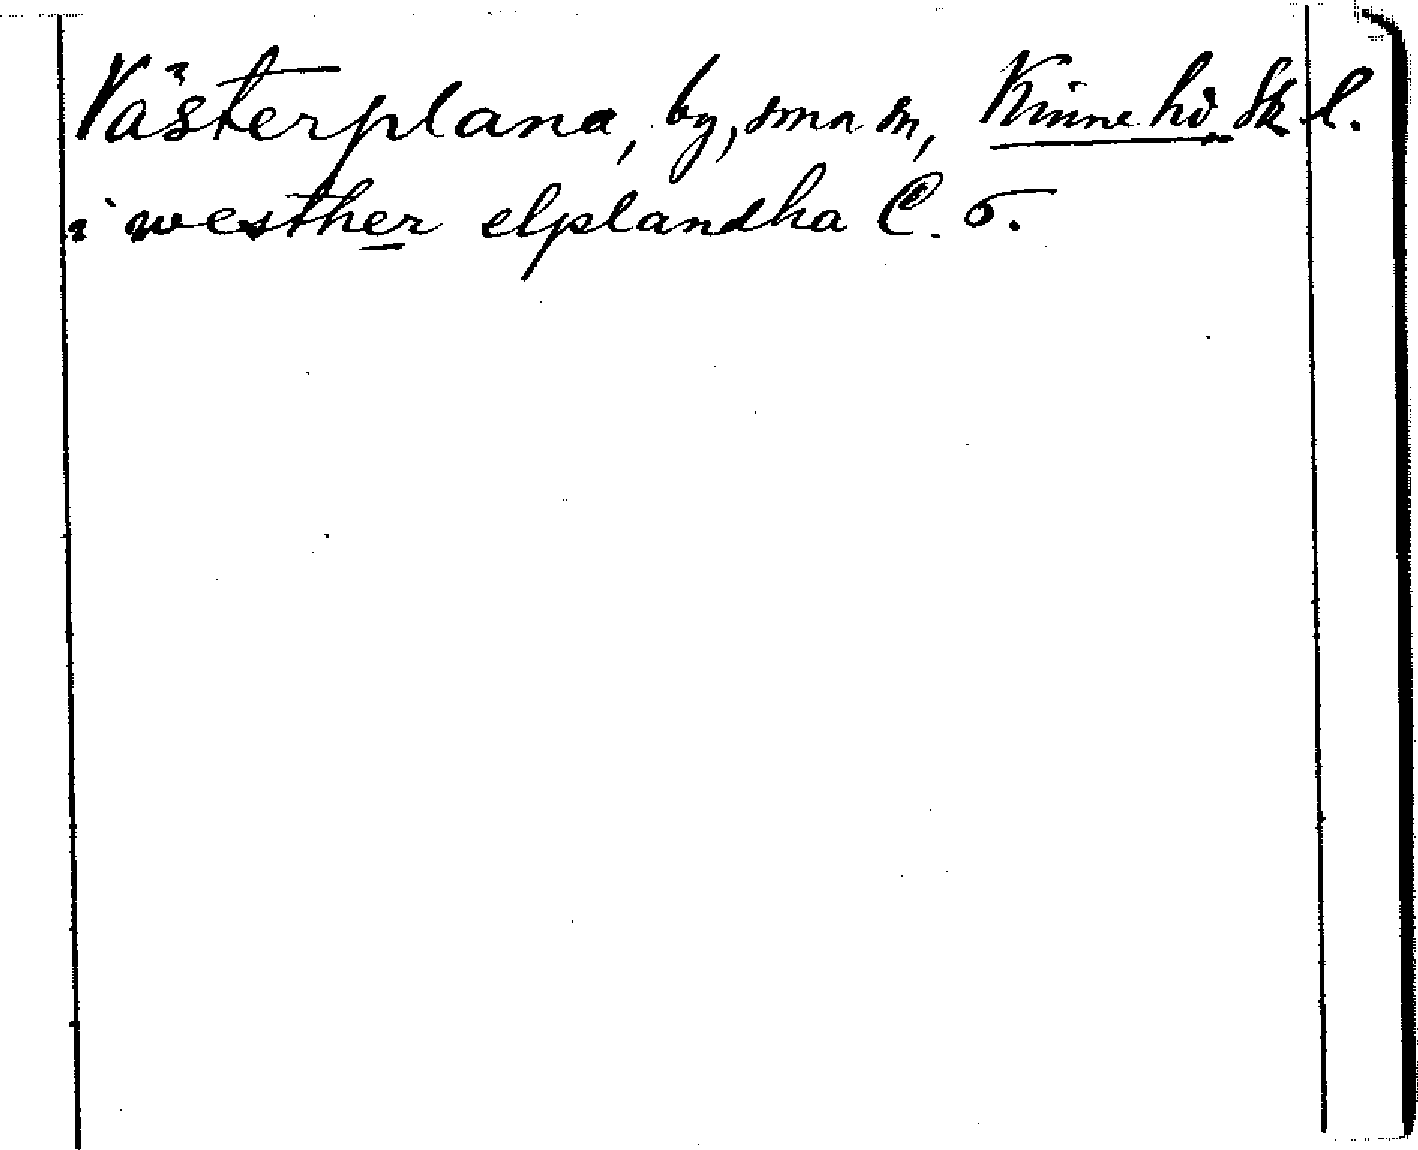 Västerplana, by, smn sn, Kinne hd Sk l.
i westher elplandha C. 5.